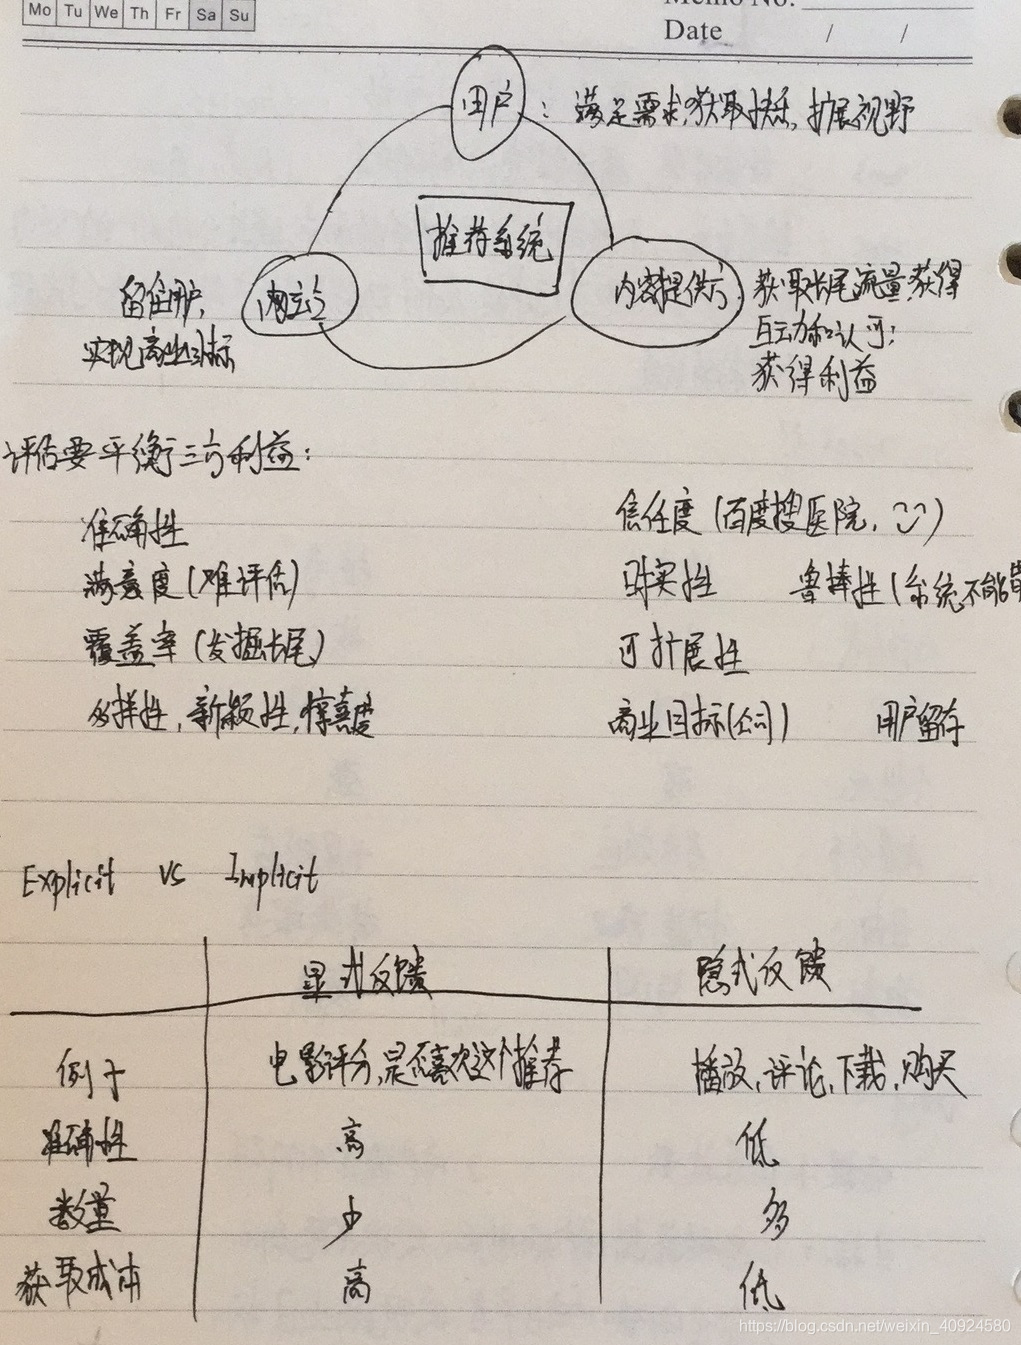 Mo Tu We Th Fr Sa Su
Memo No.
Date / /
用户 : 满足需求,获取快乐,扩展视野
推荐系统
留住用户,
实现商业目标
内容提供方
获取长尾流量,获得
互动和认可;
获得利益
评估要平衡三方利益:
准确性 信任度(百度搜医院,
满意度(难评估) 时实性 鲁棒性(系统不能
覆盖率(发掘长尾) 可扩展性
多样性,新颖性,惊喜度 商业目标(公司) 用户留存
Explicit vs Implicit
显式反馈 隐式反馈
例子 电影评分,是否喜欢这个推荐 播放,评论,下载,购买
准确性 高 低
数量 少 多
获取成本 高 低
https://blog.csdn.net/weixin_40924580